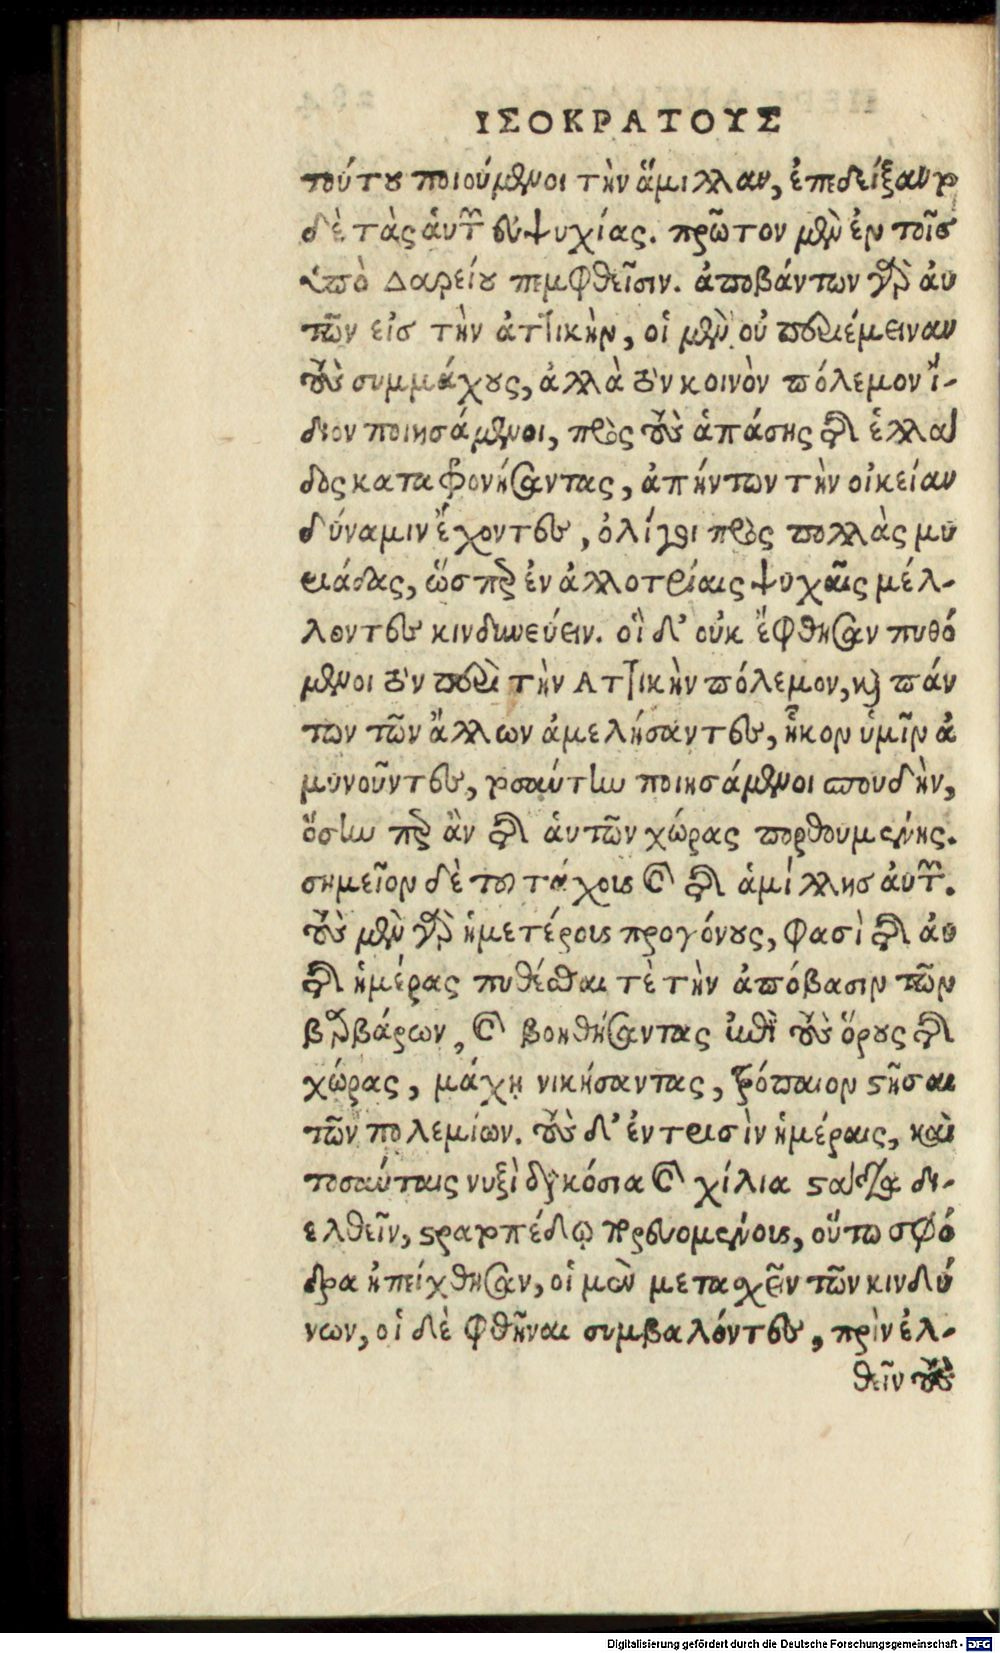 ΙΣΟΚΡΑΤΟΥΣ
τούτου ποιούμενοι τὴν ἅμιλλαν, ἐπεδείξαντο
δὲ τὰς αὑτῶν εὐψυχίας. πρῶτον μὲν ἐν τοῖς
ὑπὸ Δαρείου πεμφθεῖσιν. ἀποβάντων γὰρ αὐ
τῶν εἰς τὴν ἀττικὴν, οἱ μὲν οὐ περιέμειναν
τοὺς συμμάχους, ἀλλὰ τὸν κοινὸν πόλεμον ἴ-
διον ποιησάμενοι, πρὸς τοὺς ἁπάσης τῆς ἑλλά
δος καταφρονήσαντας, ἀπήντων τὴν οἰκείαν
δύναμιν ἔχοντες, ὀλίγοι πρὸς πολλὰς μυ
ριάδας, ὥσπερ ἐν ἀλλοτρίαις ψυχαῖς μέλ-
λοντες κινδυνεύειν. οἳ δ' οὐκ ἔφθησαν πυθό
μενοι τὸν περὶ τὴν Ἀττικὴν πόλεμον, καὶ πάν
των τῶν ἄλλων ἀμελήσαντες, ἧκον ὑμῖν ἀ
μυνοῦντες, τοσαύτην ποιησάμενοι σπουδὴν,
ὅσην περ ἂν τῆς αὑτῶν χώρας πορθουμένης.
σημεῖον δὲ τοῦ τάχους καὶ τῆς ἁμίλλης αὐτῶν.
τοὺς μὲν γὰρ ἡμετέρους προγόνους, φασὶ τῆς αὐ
τῆς ἡμέρας πυθέσθαι τὲ τὴν ἀπόβασιν τῶν
βαρβάρων, καὶ βοηθήσαντας ἐπὶ τοὺς ὅρους τῆς
χώρας, μάχῃ νικήσαντας, τρόπαιον στῆσαι
τῶν πολεμίων. τοὺς δ' ἐν τρισὶν ἡμέραις, καὶ
τοσαύταις νυξὶ διακόσια καὶ χίλια στάδια δι-
ελθεῖν, στρατοπέδῳ πορευομένους, οὕτω σφό
δρα ἠπείχθησαν, οἱ μὲν μετασχεῖν τῶν κινδύ
νων, οἱ δὲ φθῆναι συμβαλόντες, πρὶν ἐλ-
θεῖν τοὺς
Digitalisierung gefördert durch die Deutsche Forschungsgemeinschaft - DFG